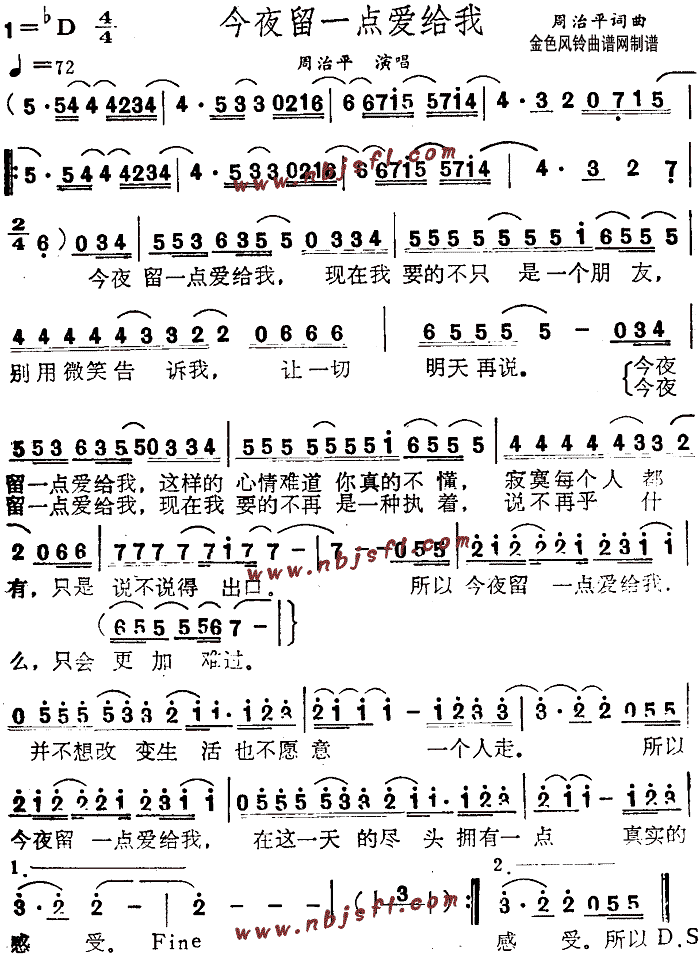 1=♭D 4/4 今夜留一点爱给我 周治平词曲
金色风铃曲谱网制谱
♩=72 周治平 演唱
(5·5444234|4·5330216|66715 5714|4·320715|
5·5444234|4·5330216|66715 5714|4·327|
www.nbjsfl.com
2/4 6)034|553635 5 0334|555555516555 5|
今夜 留一点爱给我， 现在我 要的不只 是一个朋 友，
444443322 0666|65555-034|
别用微笑告 诉我， 让一切 明天再说。 今夜
今夜
5536355 0334|5555555516555|44444332
留一点爱给我，这样的 心情难道 你真的不 懂， 寂寞每个人 都
留一点爱给我，现在我 要的不再 是一种执着， 说不再乎 什
2066|77777177-|7-055|2122212311|
www.nbjsfl.com
有，只是 说不说得 出口。 所以 今夜留 一点爱给我．
(6555567-|}
么，只会 更加 难过。
0555533211·123|2111-1233|3·22055|
并不想改 变生 活 也不愿 意 一个人走。 所以
2122212311|0555533211·123|211-123|
今夜留 一点爱给我， 在这一天 的尽 头 拥有一 点 真实的
1. 2.
3·22-|2---|(3):||3·22055||
www.nbjsfl.com
感 受。Fine 感 受。所以D.S